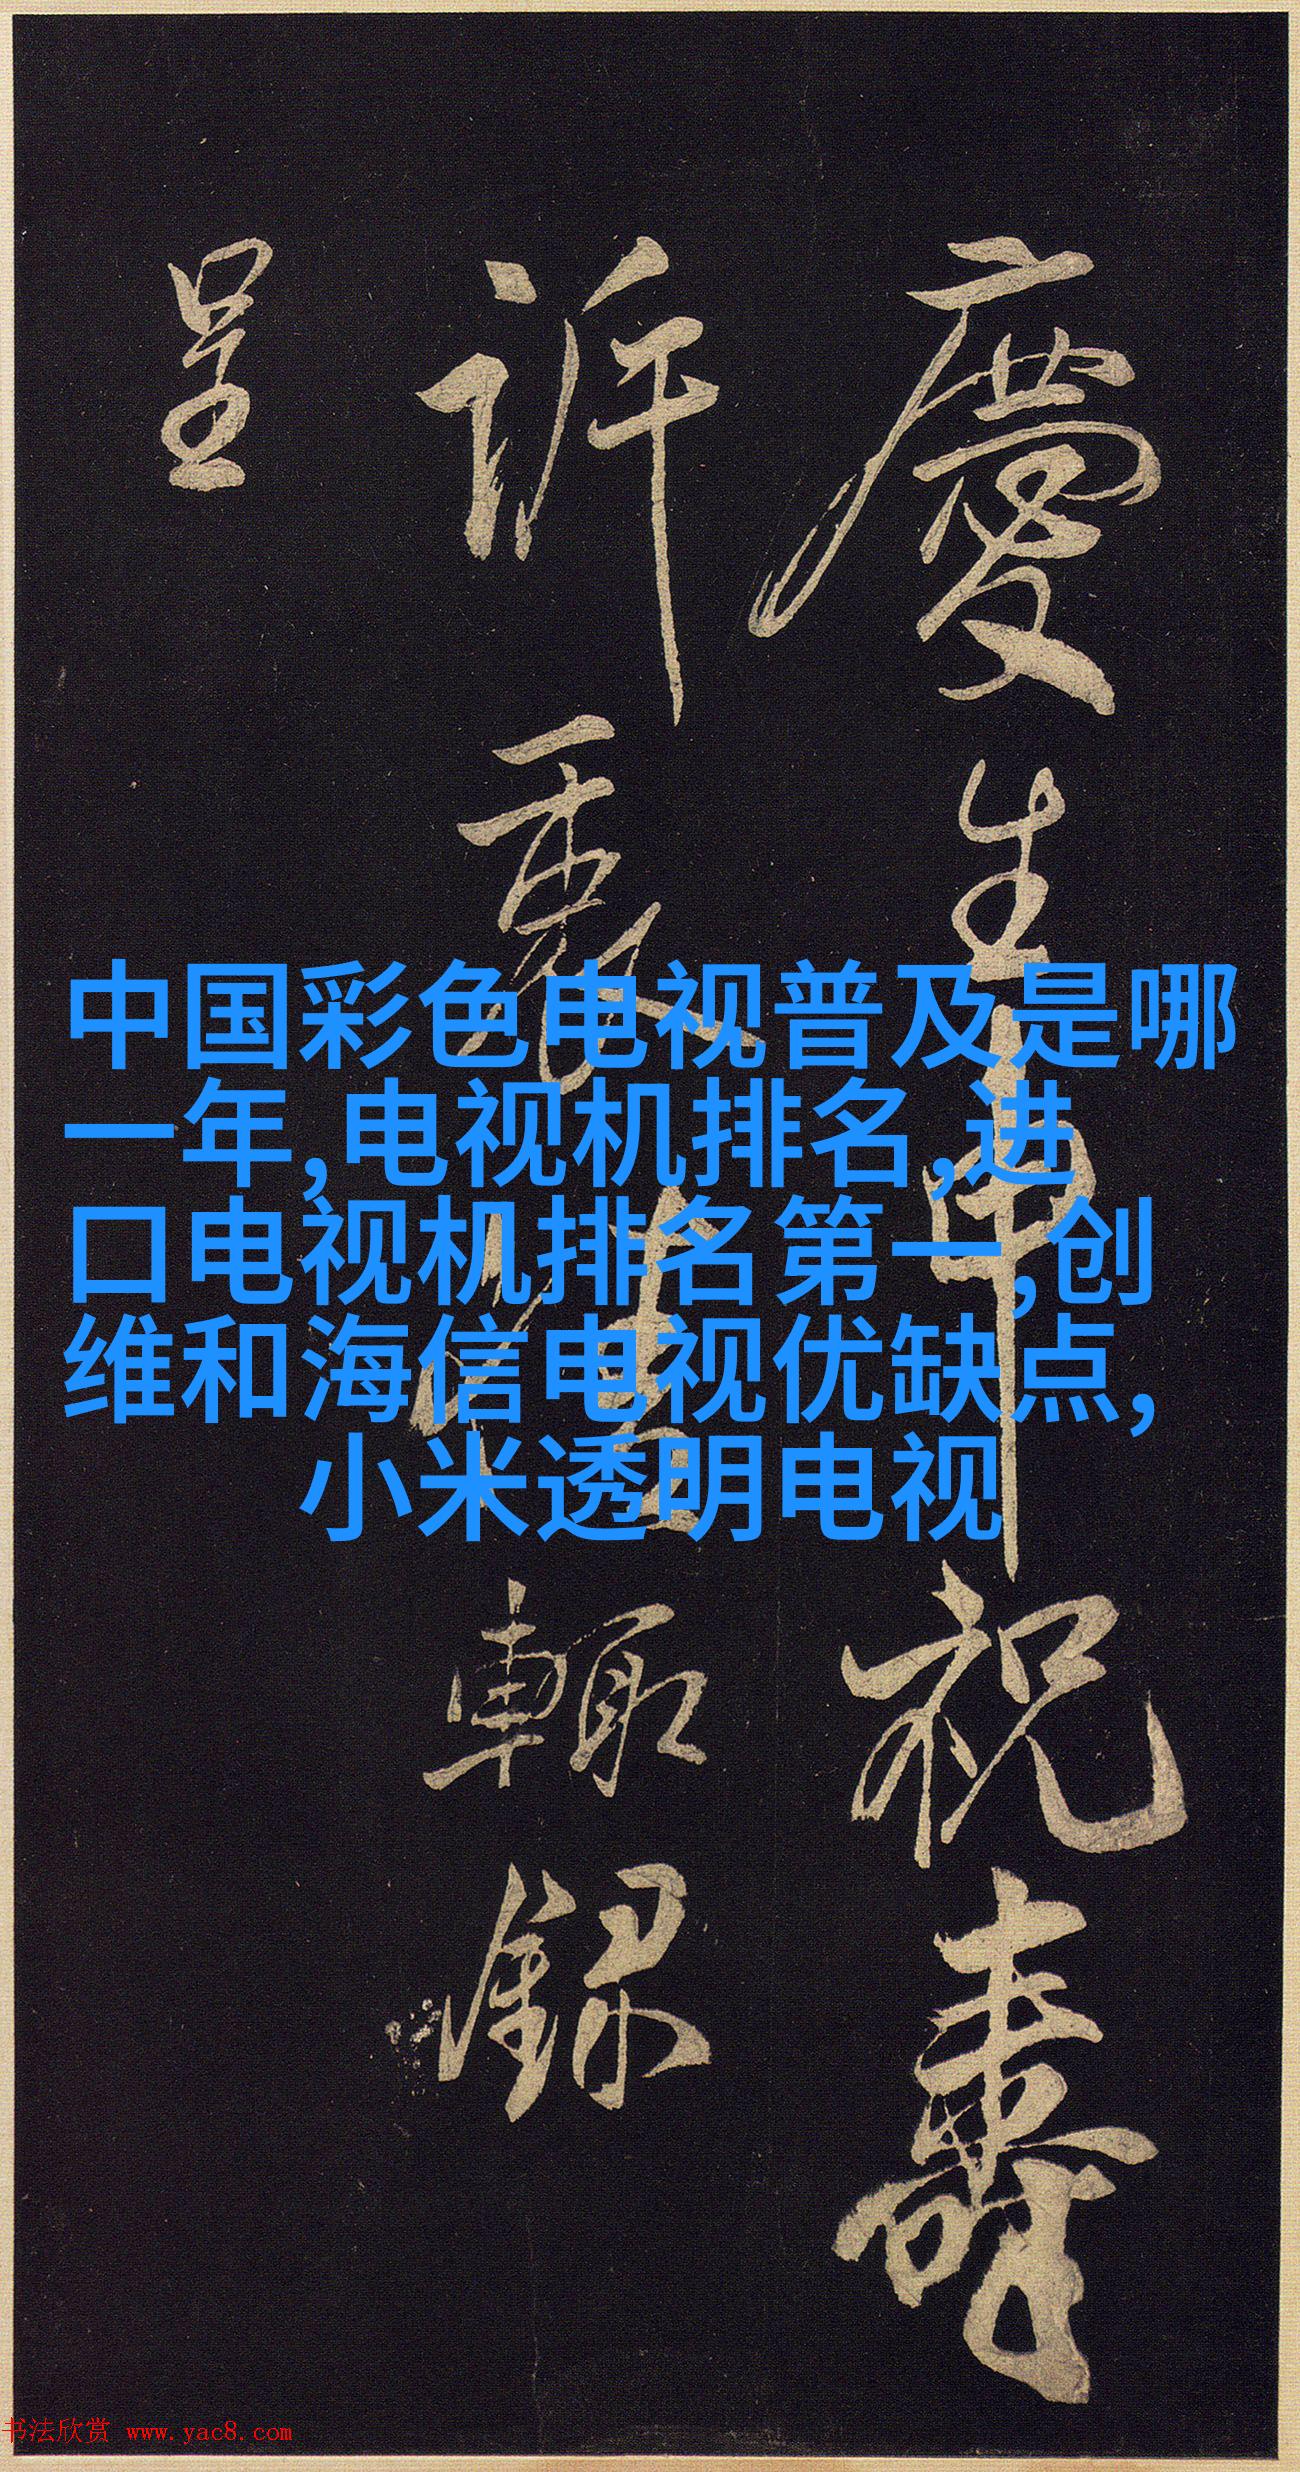 慶生申祝壽
訴裏
輙録
呈
中国彩色电视普及是哪
一年,电视机排名,进
口电视机排名第一,创
维和海信电视优缺点,
小米透明电视
书法欣赏 www.yac8.com